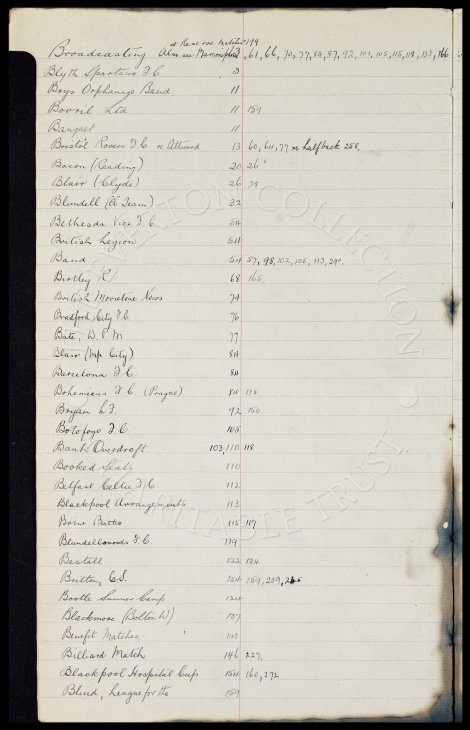 at Reserve Matches 199
Broadcasting Also see Microphone 3, 61, 66, 70, 77, 84, 87, 92, 101, 105, 115, 118, 123, 166
Blyth Spartans F.C. 3
Boys Orphanage Band 11
Bovril Ltd 11 159
Banquet 11
Bristol Rovers F.C. re Attwood 13 60, 64, 77 re halfback 258,
Bacon (Reading) 20 26
Blair (Clyde) 26 28
Blundell (A Team) 32
Bethesda Vics F.C. 54
British Legion 54
Band 54 57, 98, 102, 105, 113, 290,
Birtley R 68 165
British Movietone News 74
Bradford City F.C. 76
Bate, W.P.M. 77
Blair (M/c City) 84
Barcelona F.C. 84
Bohemians F.C. (Prague) 84 115
Bryan L.F. 92 150
Botofogo F.C. 105
Bank Overdraft 103, 110 118
Booked Seats 110
Belfast Celtic F.C. 112
Blackpool Arrangements 113
Brine Baths 115 117
Blundellsands F.C. 119
Bestall 122 124
Britton, C.S. 124 159, 209, 265
Bootle Summer Camp 124
Blackmore (Bolton W) 137
Benefit Matches 143
Billiard Match 146 227,
Blackpool Hospital Cup 154 160, 272
Blind, League for the 159
EVERTON COLLECTION
CHARITABLE TRUST